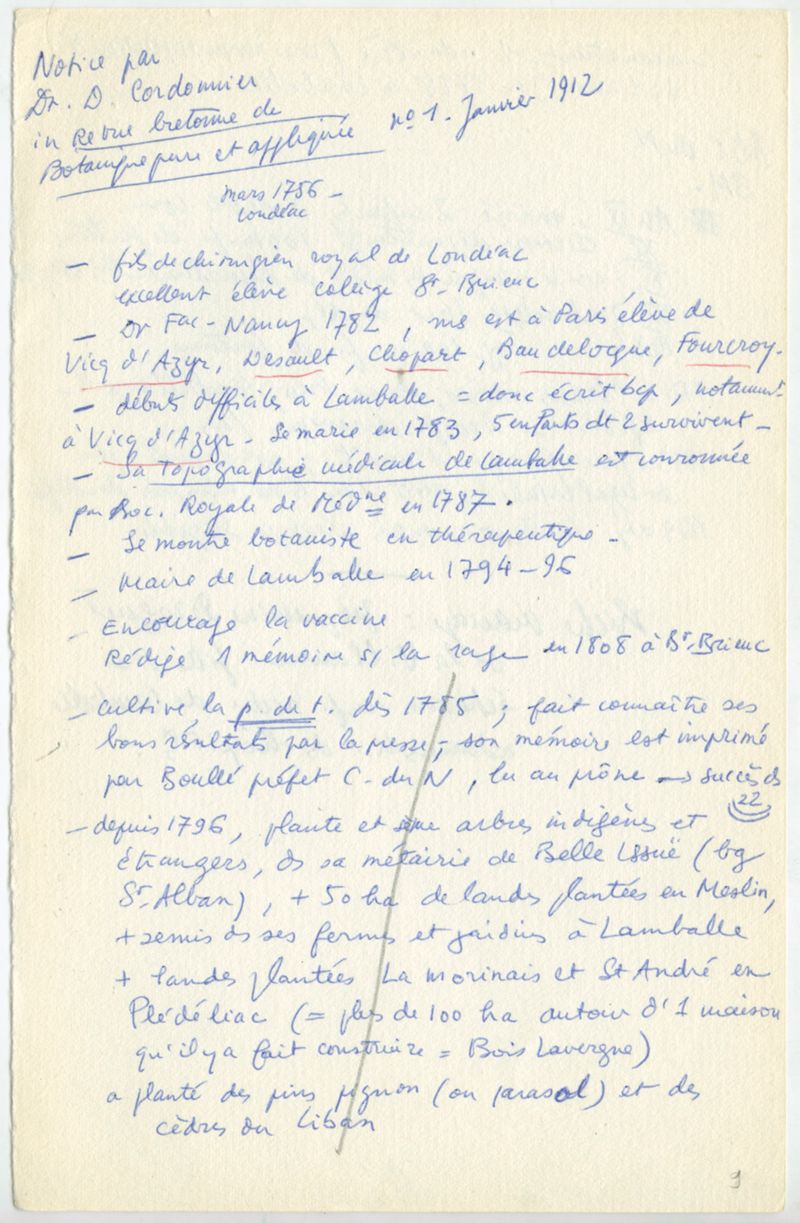 Notice par
Dr. D. Cordonnier
in Revue bretonne de
Botanique pure et appliquée nº 1. Janvier 1912
mars 1756 –
Loudéac
– fils de chirurgien royal de Loudéac
excellent élève collège St-Brieuc
– Dr Fac-Nancy 1782, ms est à Paris élève de
Vicq d'Azyr, Desault, Chopart, Baudelocque, Fourcroy.
– débuts difficiles à Lamballe = donc écrit bcp, notamt
à Vicq d'Azyr – Se marie en 1783, 5 enfants dt 2 survivent –
– Sa Topographie médicale de Lamballe est couronnée
par Soc. Royale de Médne en 1787.
– Se montre botaniste en thérapeutique –
– Maire de Lamballe en 1794–96
– Encourage la vaccine
Rédige 1 mémoire s/ la rage en 1808 à St-Brieuc
– cultive la p. de t. dès 1785, fait connaître ses
bons résultats par la presse, son mémoire est imprimé
par Boullé préfet C-du N, lu au prône → succès ds
22
– depuis 1796, plante et sème arbres indigènes et
étrangers, ds sa métairie de Belle Issuë (bg
St-Alban), + 50 ha de landes plantées en Meslin,
+ semis ds ses fermes et jardins à Lamballe
+ landes plantées La Morinais et St André en
Plédéliac (= plus de 100 ha autour d'1 maison
qu'il y a fait construire = Bois Lavergne)
a planté des pins pignon (ou parasol) et des
cèdres du Liban
9